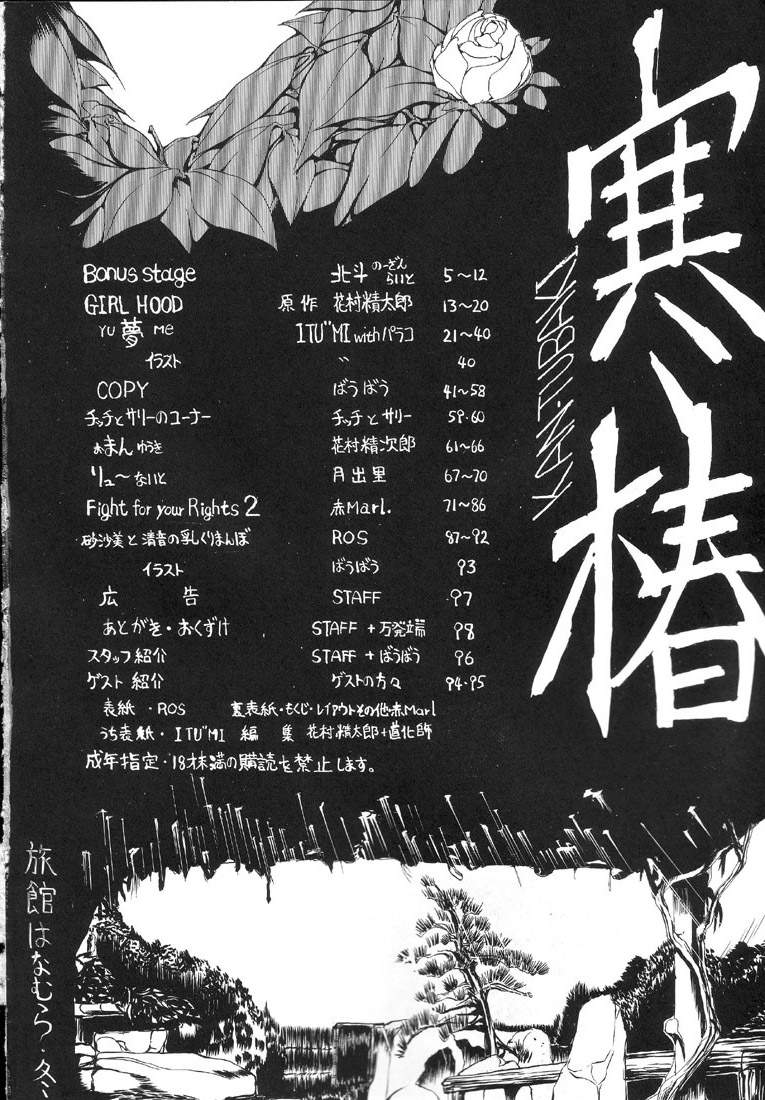 寒椿
KAN-TUBAKI
Bonus stage 北斗のーざんらいと 5～12
GIRL HOOD 原作 花村精太郎 13～20
YU夢Me ITU"MI with パラコ 21～40
イラスト 〃 40
COPY ぼうぼう 41～58
チッチとサリーのコーナー チッチとサリー 59・60
おまんゆうき 花村精次郎 61～66
リュ～ないと 月出里 67～70
Fight for your Rights 2 赤Marl. 71～86
砂沙美と清音の乳くりまんぼ ROS 87～92
イラスト ぼうぼう 93
広告 STAFF 97
あとがき・おくずけ STAFF + 万発端 98
スタッフ紹介 STAFF + ぼうぼう 96
ゲスト紹介 ゲストの方々 94・95
表紙・ROS 裏表紙・もくじ・レイアウトその他・赤Marl
うち表紙・ITU"MI 編集 花村精太郎+道化師
成年指定・18才未満の購読を禁止します。
旅館はなむら・冬